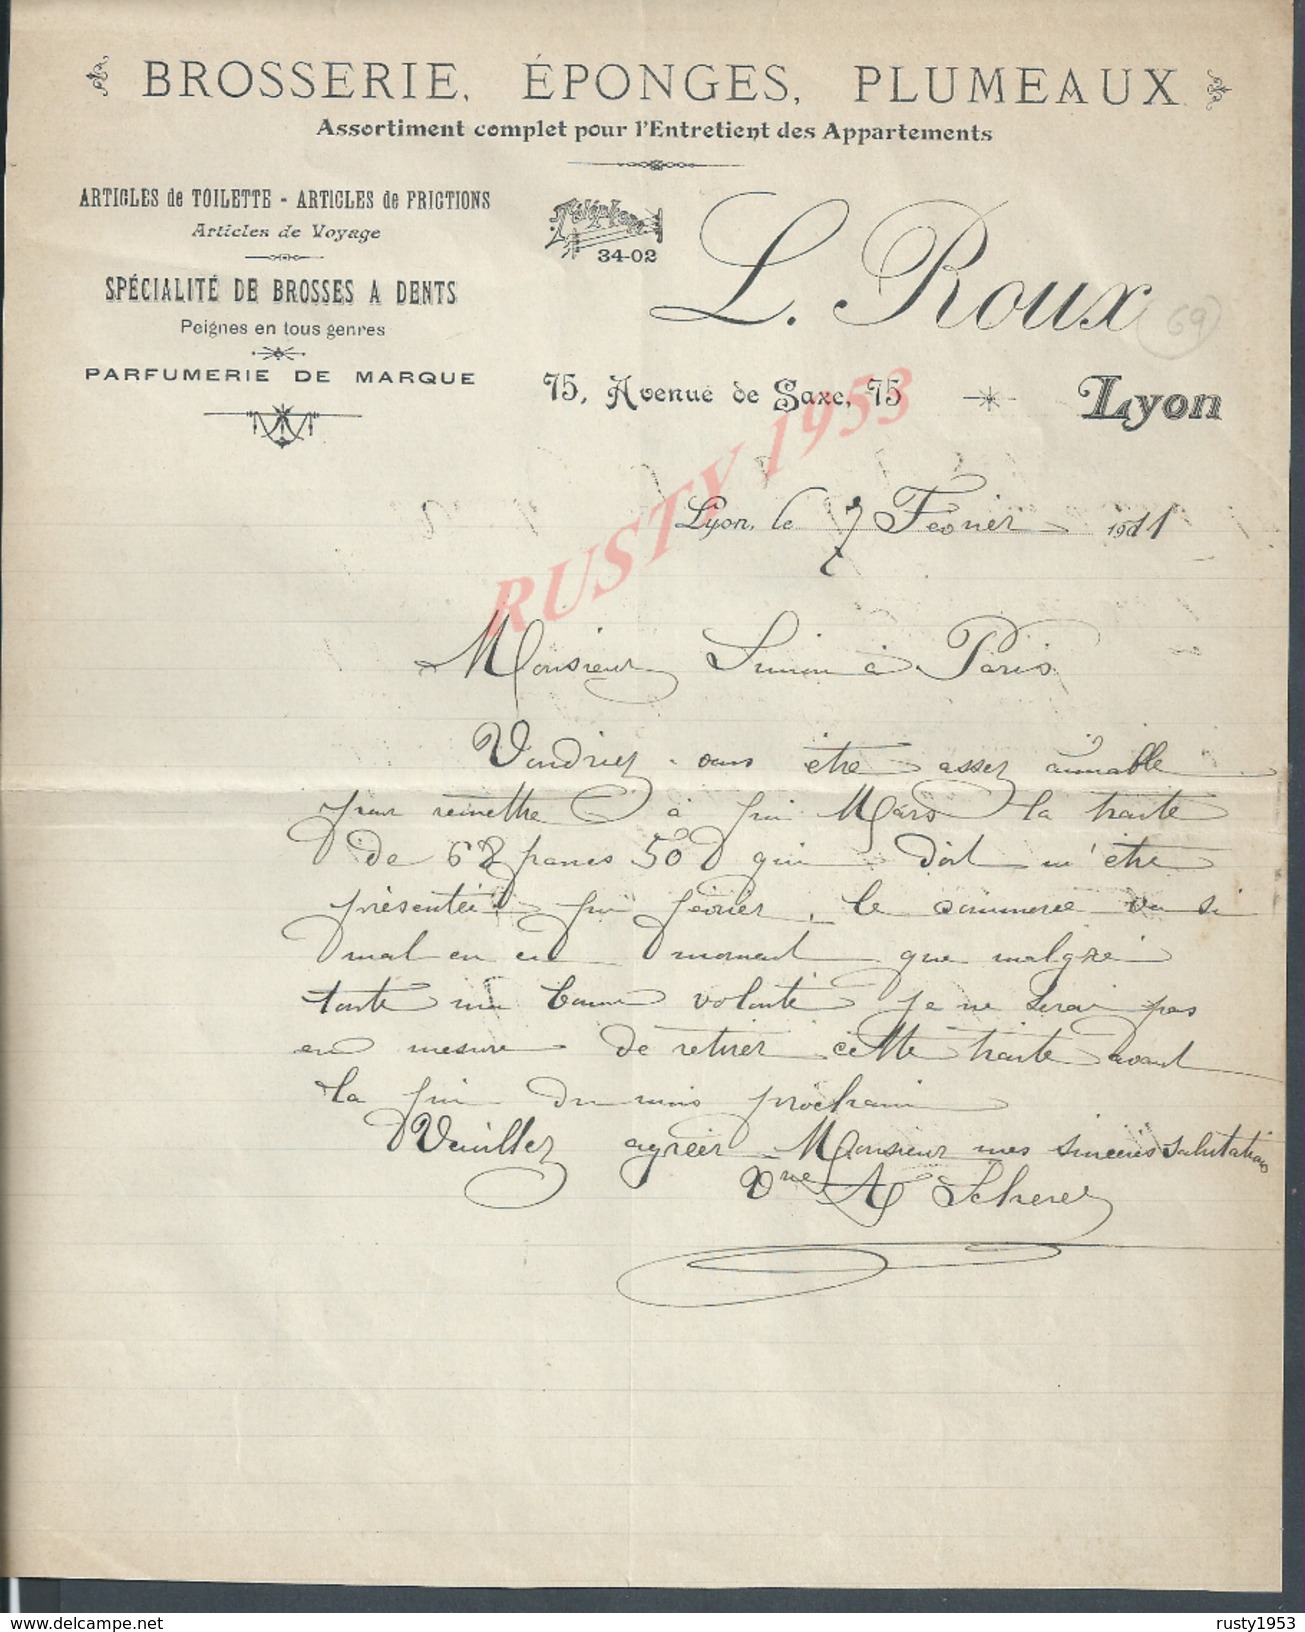 BROSSERIE, ÉPONGES, PLUMEAUX
Assortiment complet pour l'Entretient des Appartements
ARTICLES de TOILETTE - ARTICLES de FRICTIONS
Articles de Voyage
SPÉCIALITÉ DE BROSSES A DENTS
Peignes en tous genres
PARFUMERIE DE MARQUE
Téléphone
34-02
L. Roux
69
75, Avenue de Saxe, 75
Lyon
RUSTY 1953
Lyon, le 7 Février 1911
Monsieur à Paris
Voudriez-vous être assez aimable
pour remettre à fin Mars la traite
de 68 francs 50 qui doit m'être
présentée fin février, le commerce va si
mal en ce moment que malgré
toute ma bonne volonté je ne serai pas
en mesure de retirer cette traite avant
la fin du mois prochain
Veuillez agréer Monsieur mes sincères salutations
Vve A Scherer
delcampe.net
rusty1953